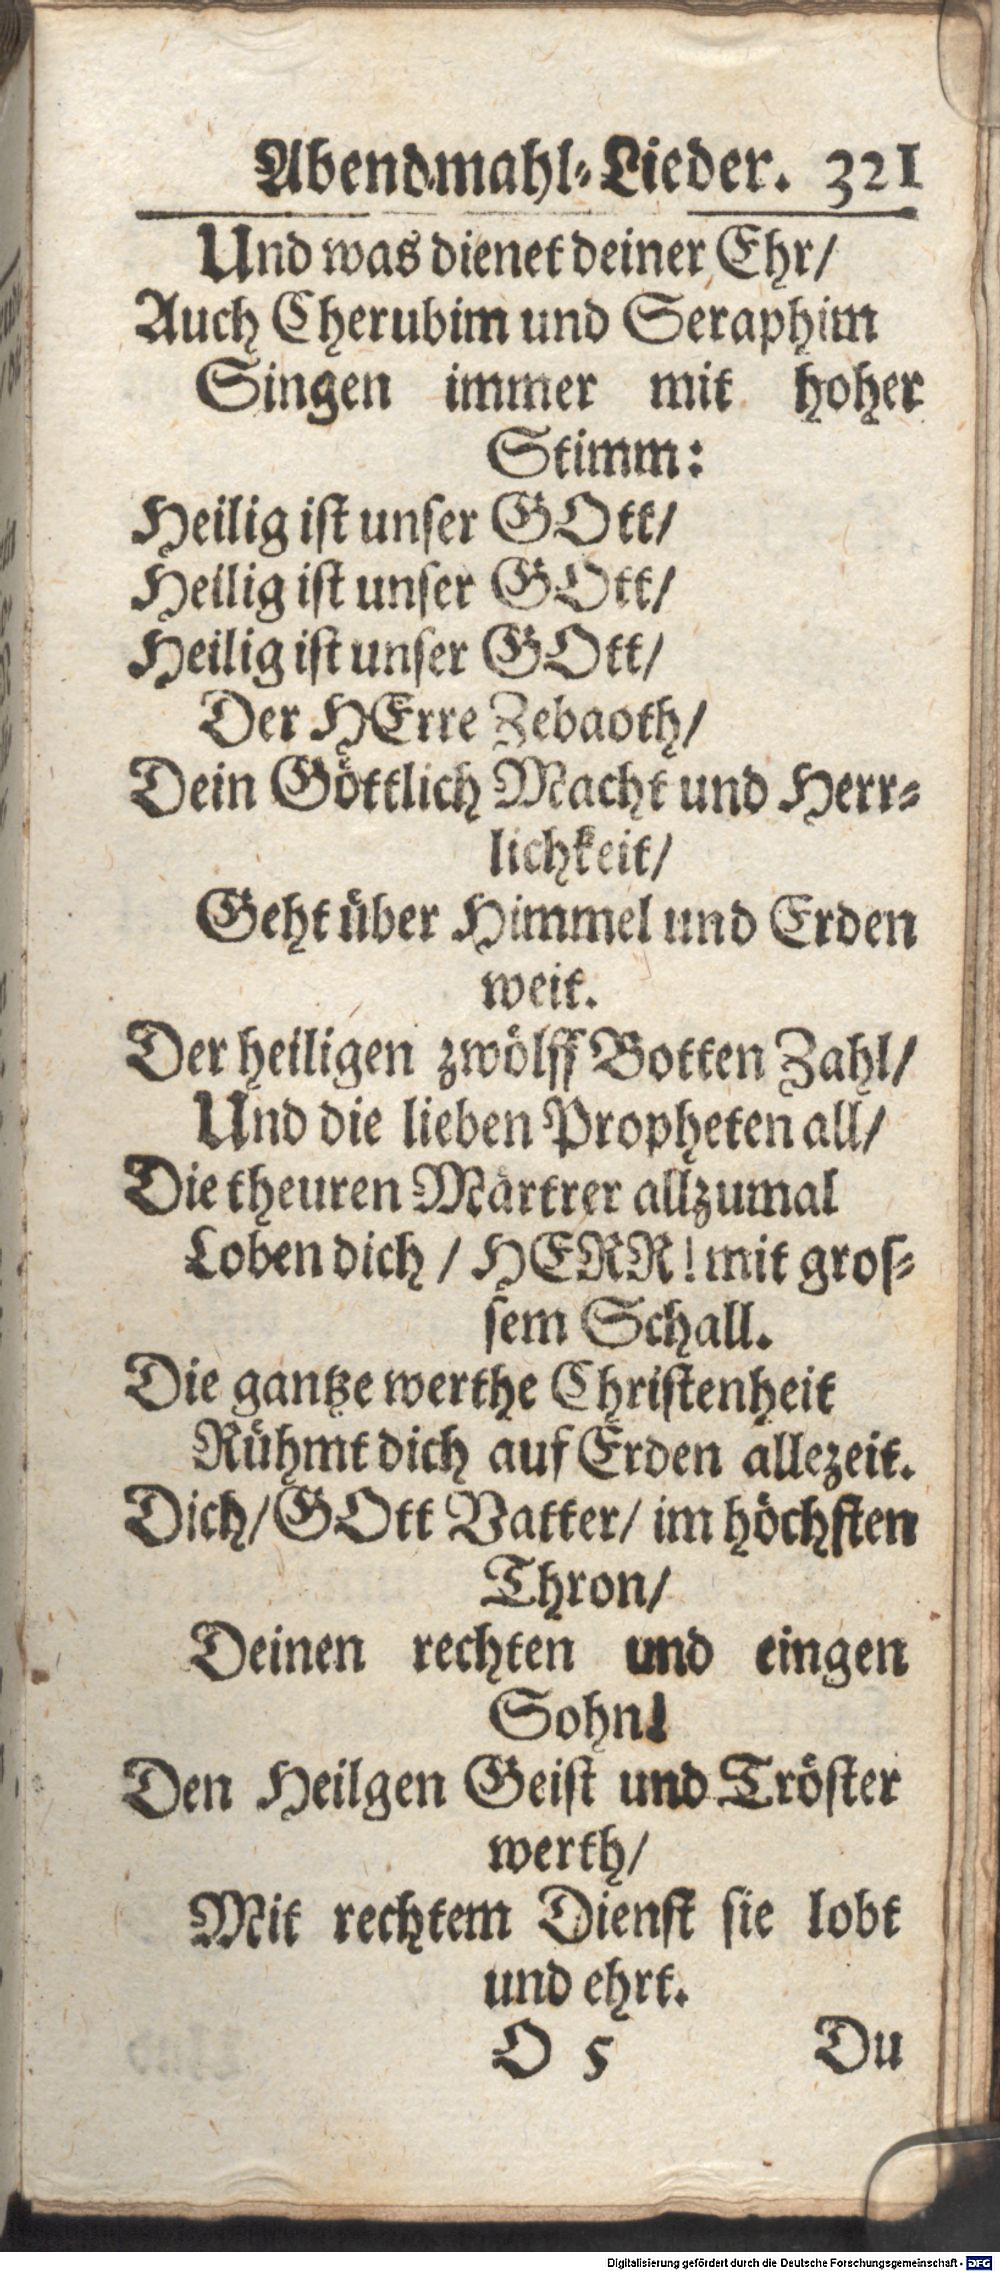 Abendmahl-Lieder. 321
Und was dienet deiner Ehr/
Auch Cherubim und Seraphim
Singen immer mit hoher
Stimm:
Heilig ist unser GOtt/
Heilig ist unser GOtt/
Heilig ist unser GOtt/
Der HErre Zebaoth/
Dein Göttlich Macht und Herr-
lichkeit/
Geht über Himmel und Erden
weit.
Der heiligen zwölff Botten Zahl/
Und die lieben Propheten all/
Die theuren Märtrer allzumal
Loben dich / HERR! mit gros-
sem Schall.
Die gantze werthe Christenheit
Rühmt dich auf Erden allezeit.
Dich/ GOtt Vatter/ im höchsten
Thron/
Deinen rechten und eingen
Sohn!
Den Heilgen Geist und Tröster
werth/
Mit rechtem Dienst sie lobt
und ehrt.
O 5 Du
Digitalisierung gefördert durch die Deutsche Forschungsgemeinschaft - DFG